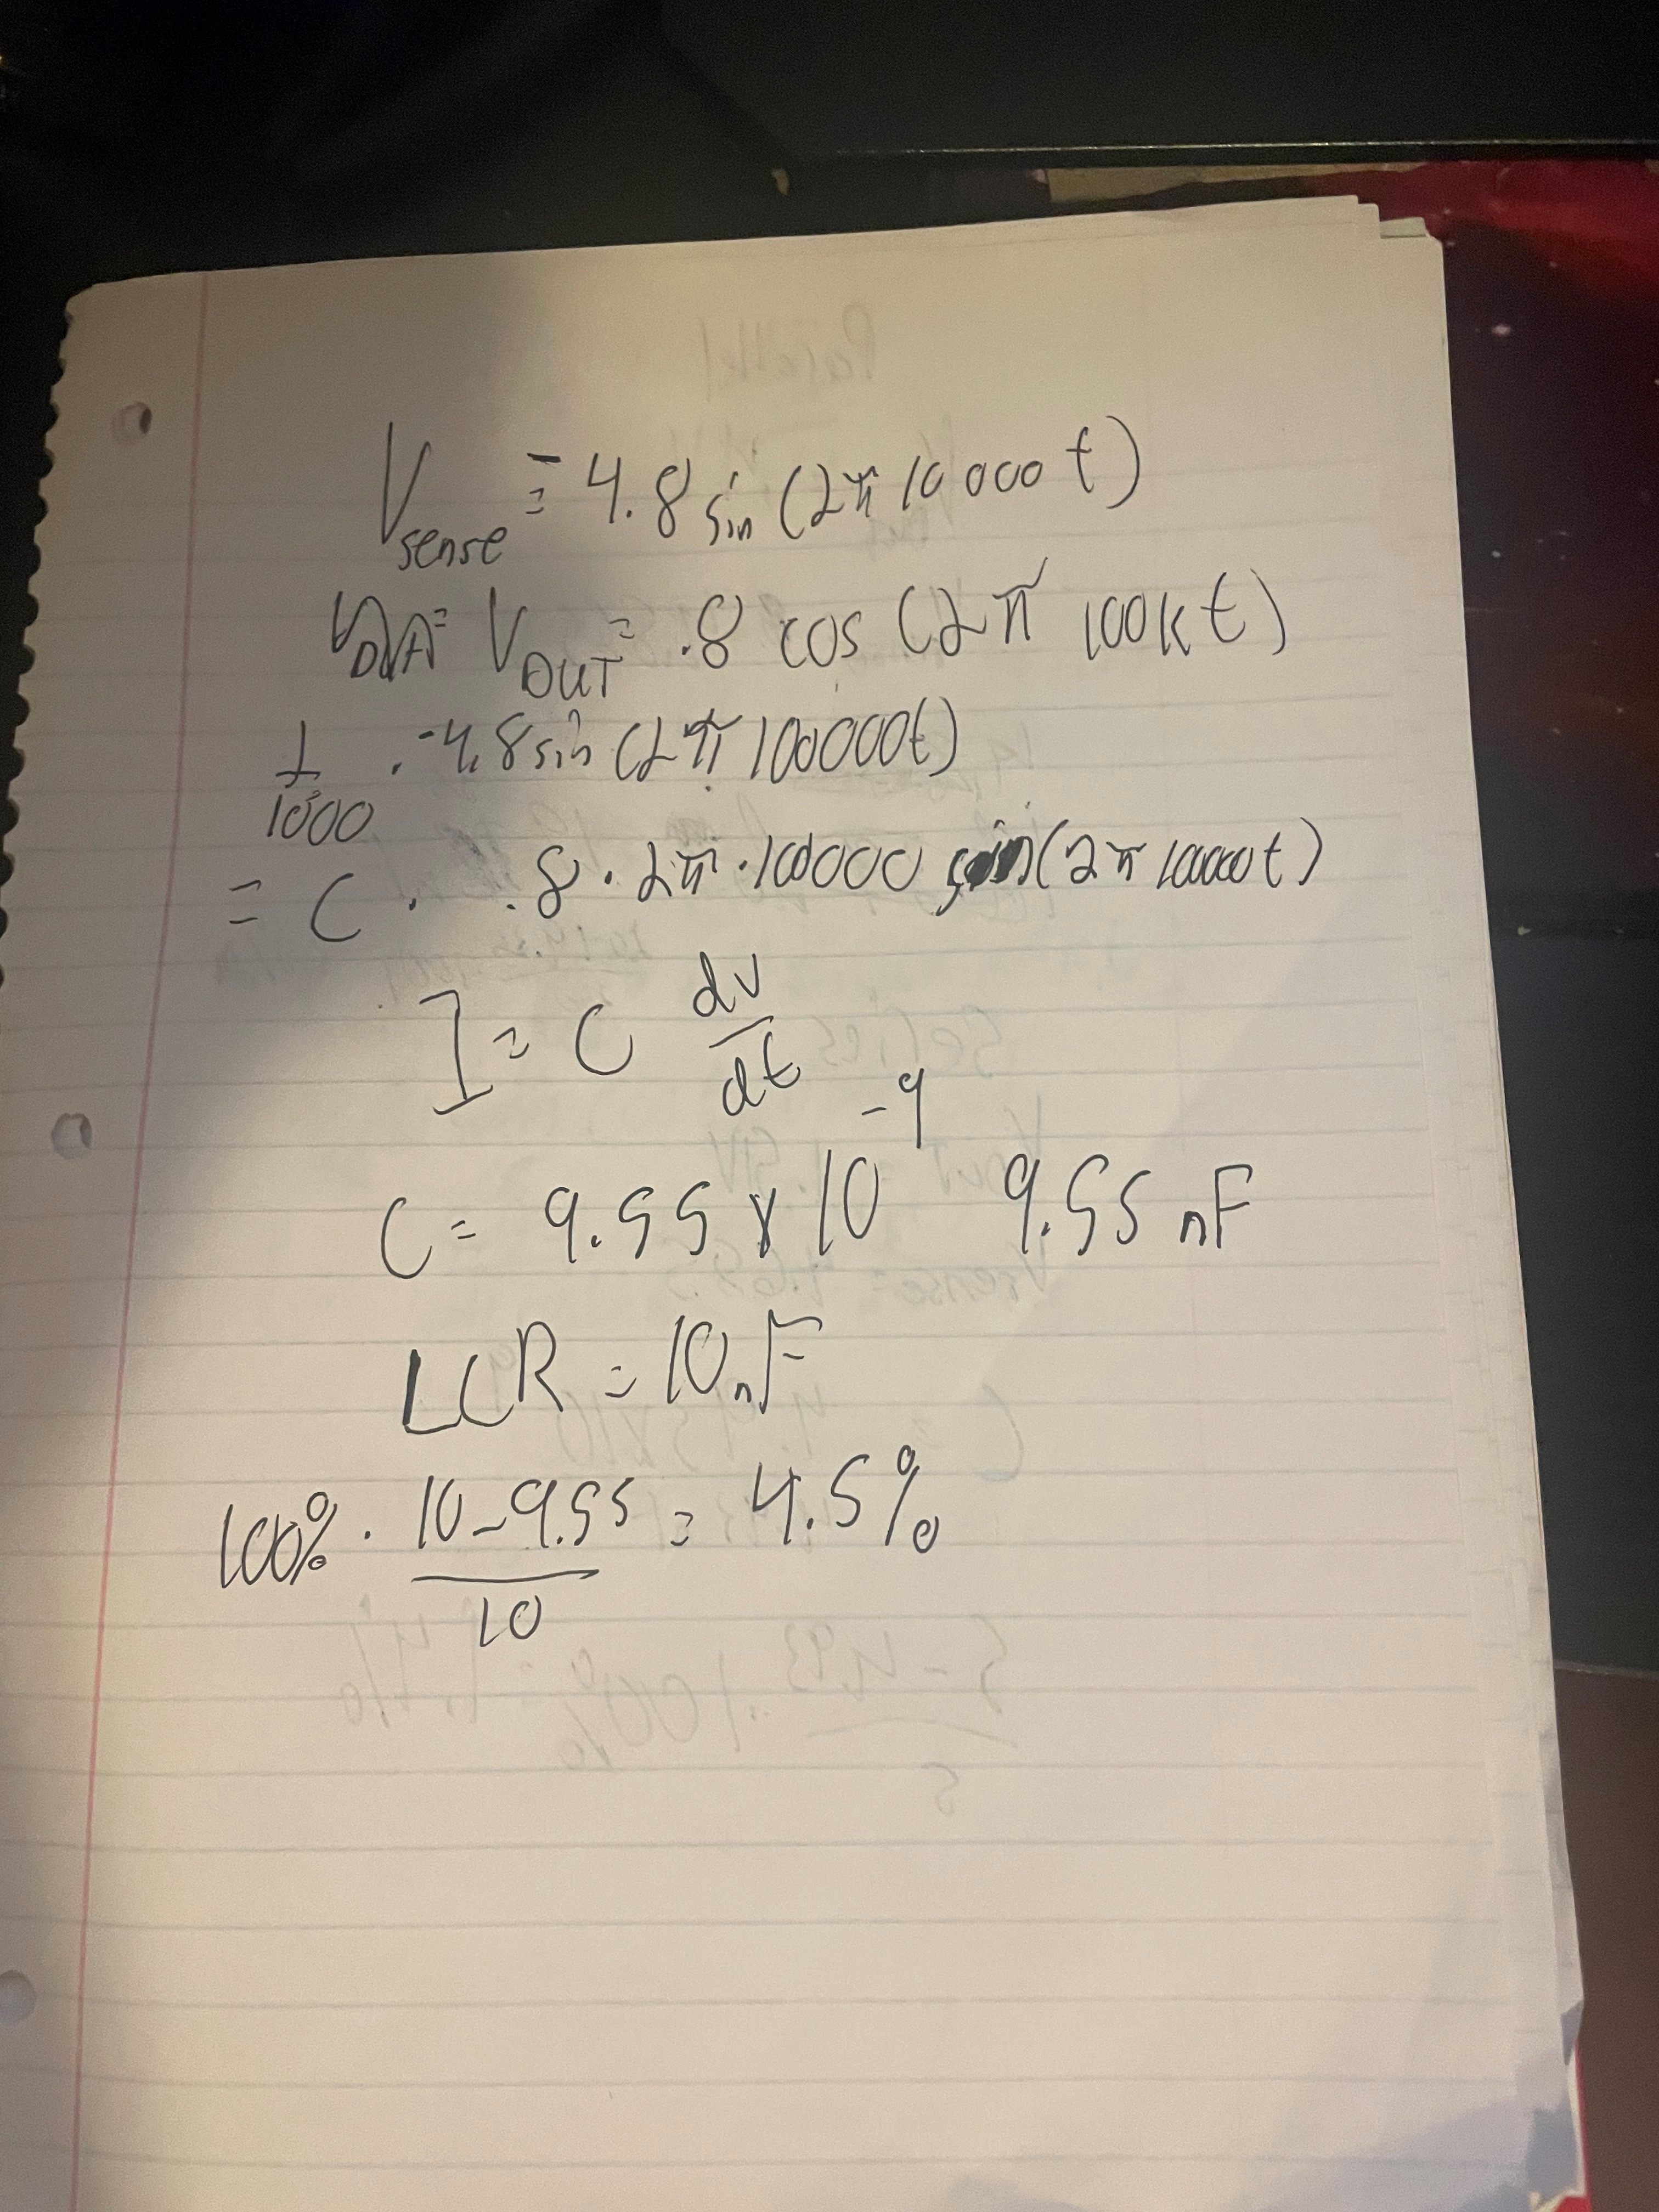 V_sense = -4.8 sin (2π 10000 t)
V_DUT = V_OUT = .8 cos (2π 100k t)
1/1000 . -4.8 sin (2π 100000t)
= C . .8 . 2π . 100000 sin (2π 10000 t)
I = C dv/dt
C = 9.55 x 10^-9 9.55 nF
LCR = 10nF
100% . (10-9.55)/10 = 4.5%